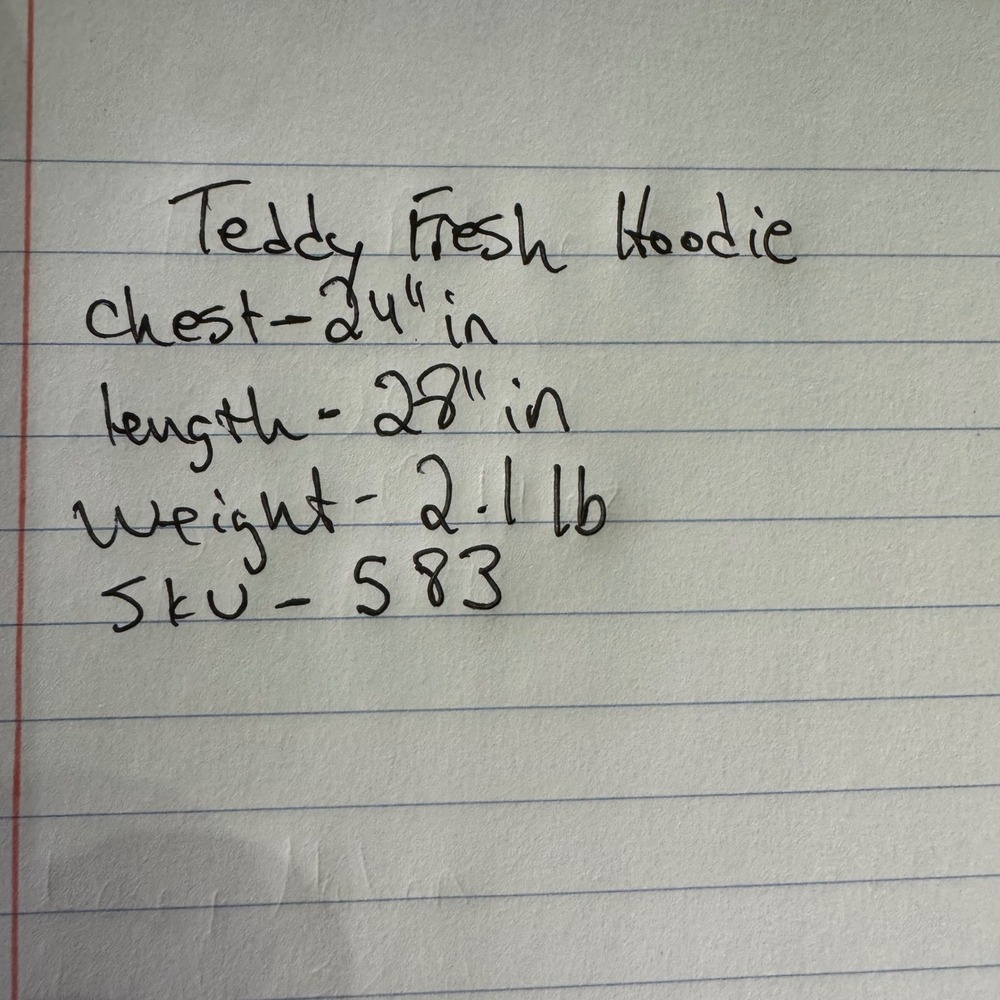 Teddy Fresh Hoodie
Chest - 24" in
Length - 28" in
Weight - 2.1 lb
SKU - 583